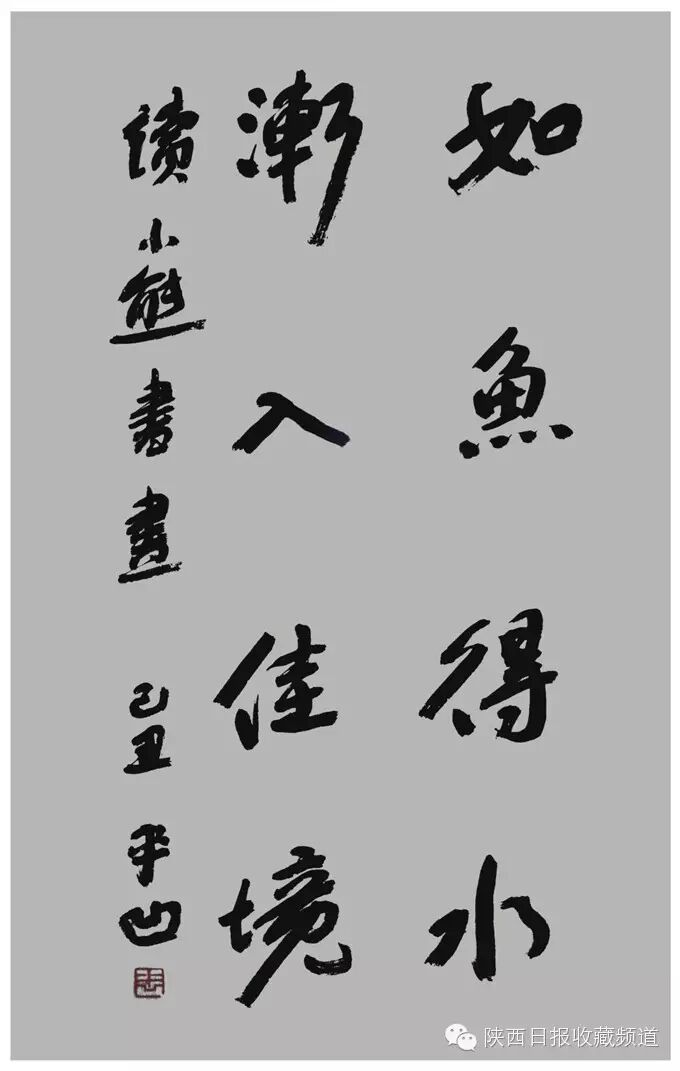 如魚得水
漸入佳境
讀小熊書畫 己丑 平凹
陕西日报收藏频道